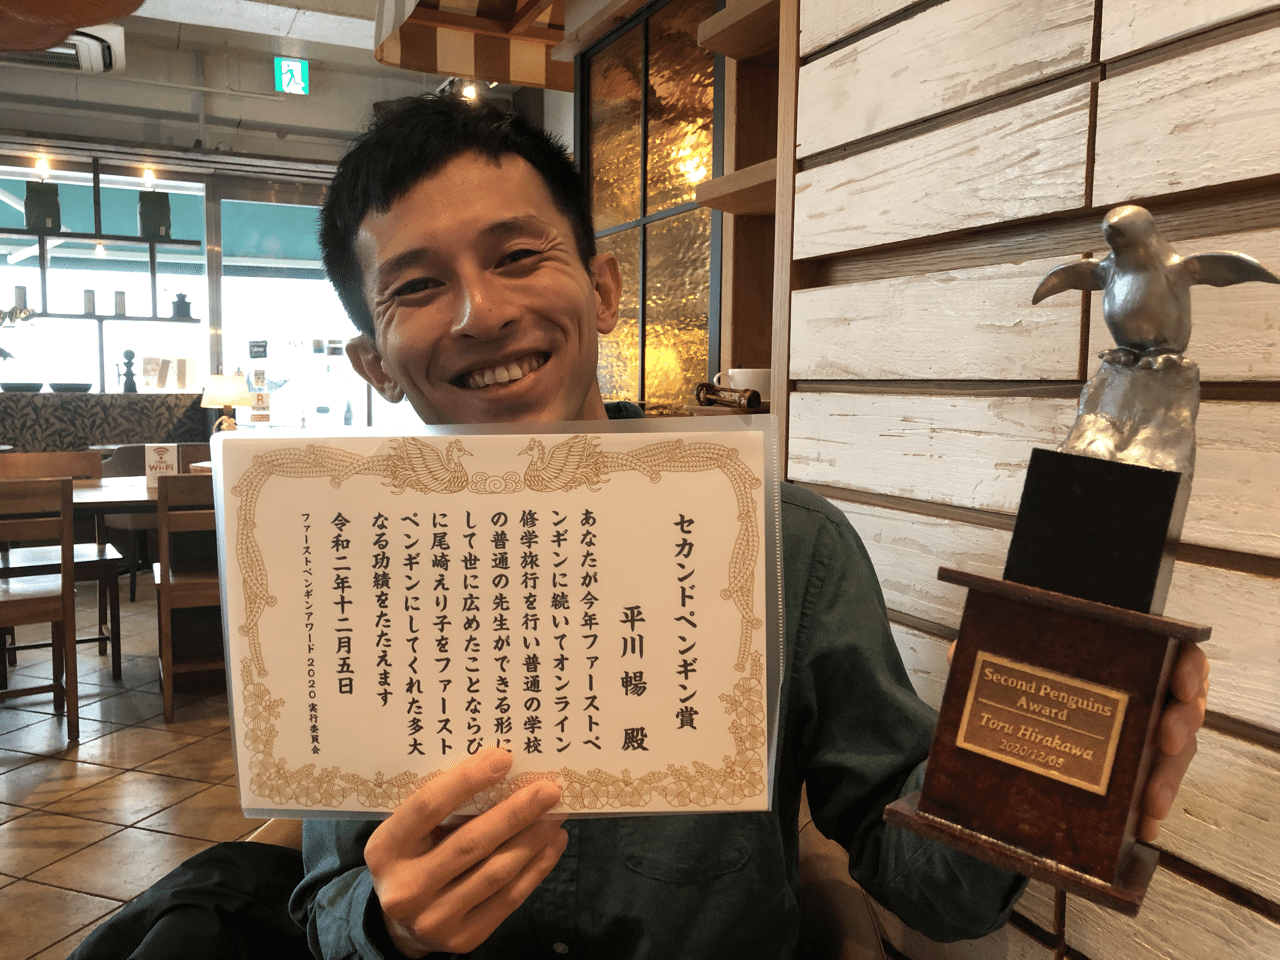 セカンドペンギン賞
平川 暢 殿
あなたが今年ファーストペ
ンギンに続いてオンライン
修学旅行を行い普通の学校
の普通の先生ができる形に
して世に広めたことならび
に尾崎えり子をファースト
ペンギンにしてくれた多大
なる功績をたたえます
令和二年十二月五日
ファーストペンギンアワード2020実行委員会
Second Penguins
Award
Toru Hirakawa
2020/12/05
Wi-Fi